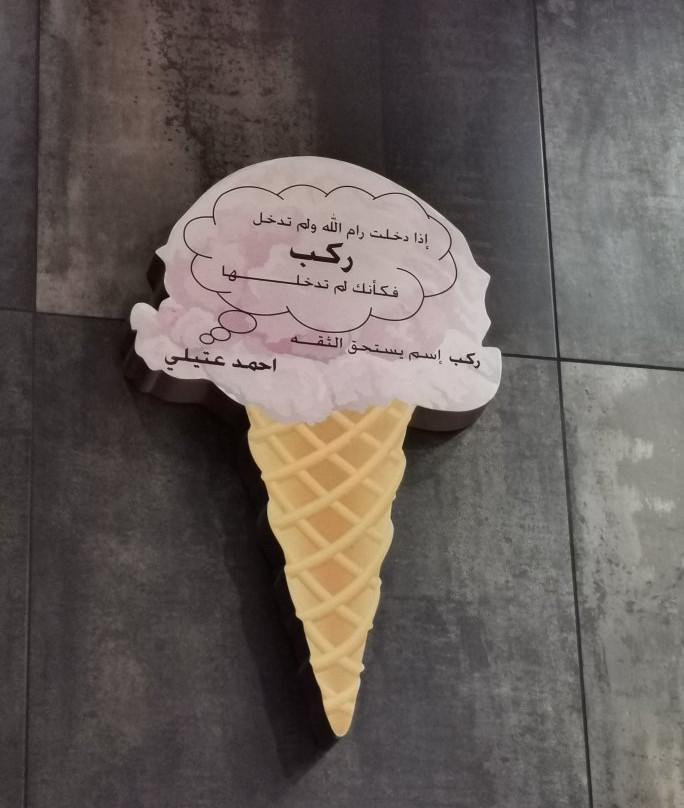 إذا دخلت رام الله ولم تدخل
ركب
فكأنك لم تدخلـــــــها
ركب إسم يستحق الثقـــه
احمد عتيلي